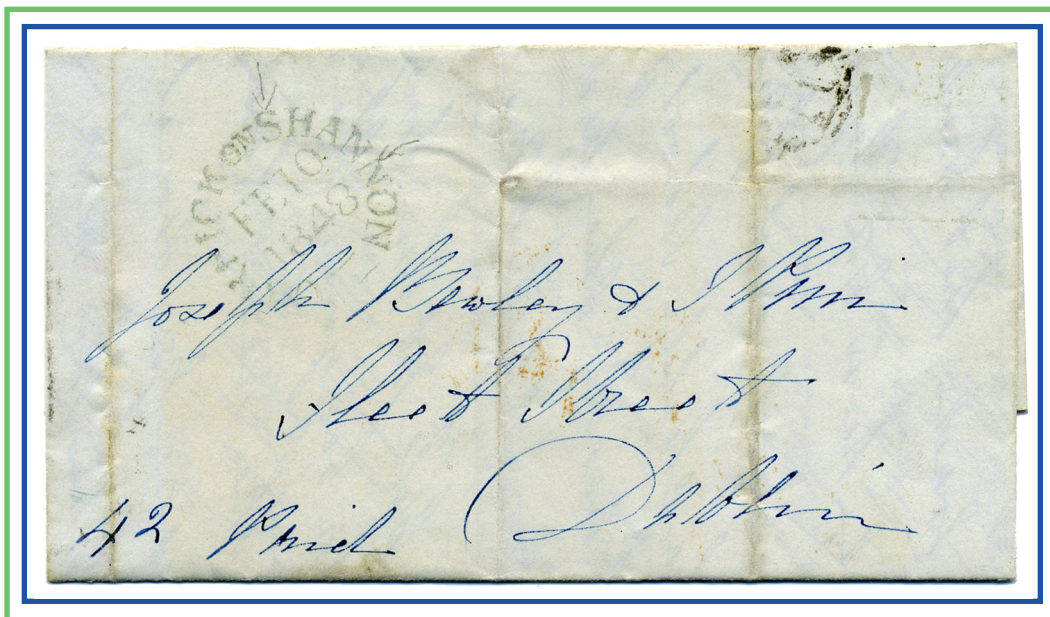 RICK ON SHANNON
FE 10
1848
Joseph Bewley & J Pim
Fleet Street
Dublin
42 Paid